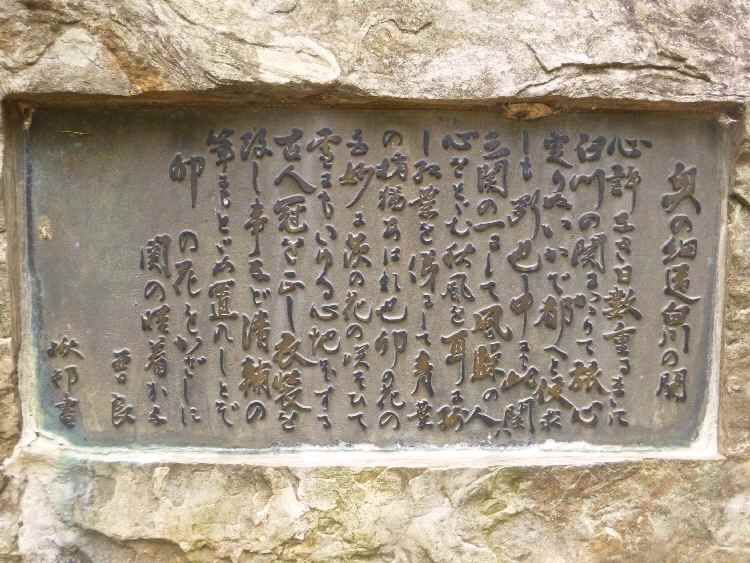 奥の細道白川の関
心許なき日數重るまゝに
白川の関にかゝりて旅心
定りぬいかで都へと便求
しも断也中にも此関は
三関の一にして風騒の人
心をとゞむ秋風を耳に残
し紅葉を俤にして青葉
の梢猶あはれ也卯の花の
白妙に茨の花の咲そひて
雪にもこゆる心地ぞする
古人冠を正し衣装を
改し事など清輔の
筆にもとゞめ置れしとぞ
卯の花をかざしに
関の晴着かな
曽良
楸邨書